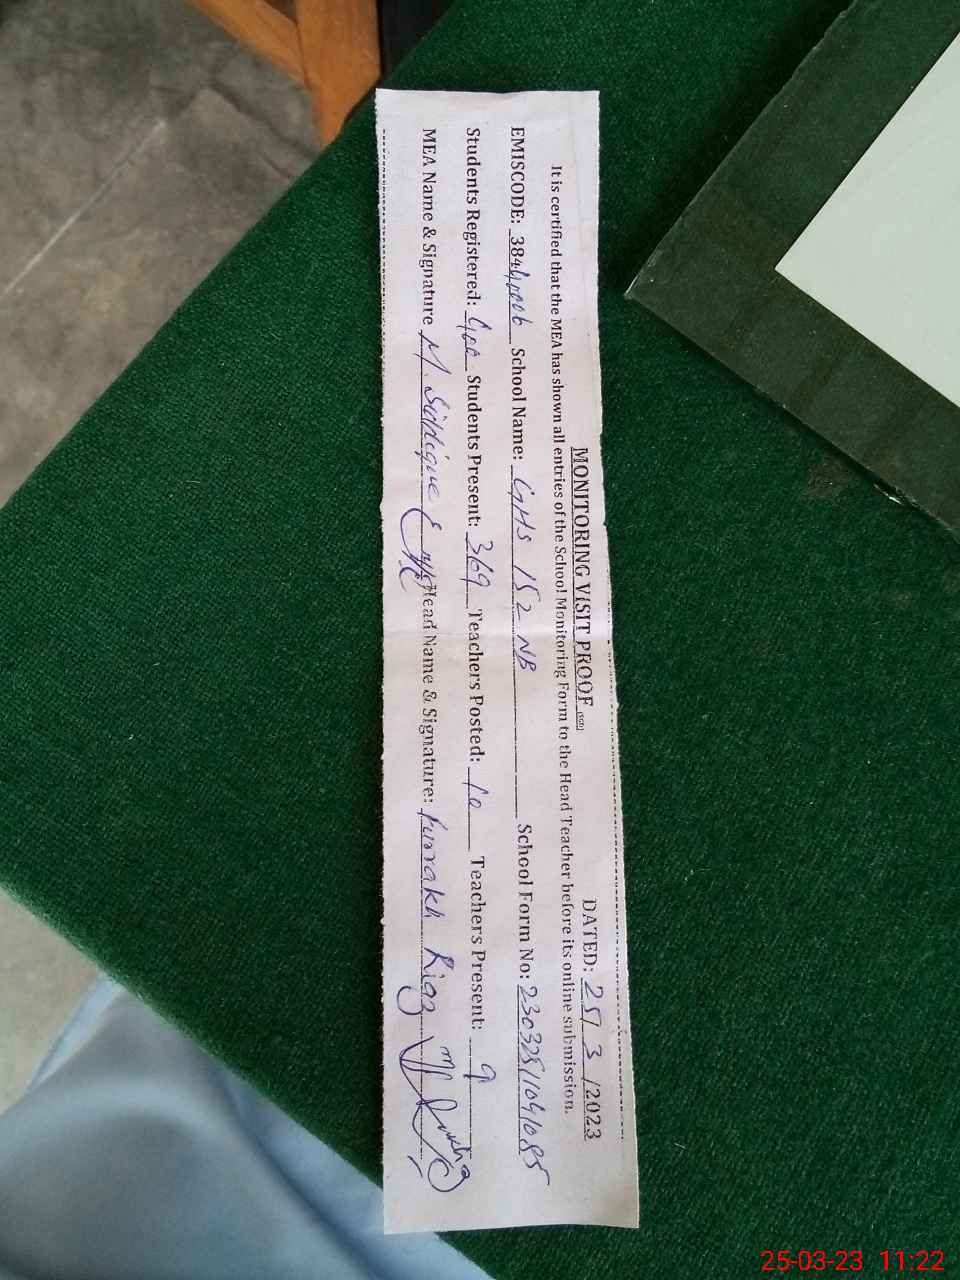 MONITORING VISIT PROOF (SGD) DATED: 25/ 3 /2023
It is certified that the MEA has shown all entries of the School Monitoring Form to the Head Teacher before its online submission.
EMISCODE: School Name: GHS 152 NB School Form No:
Students Registered: Students Present: 369 Teachers Posted: 10 Teachers Present: 9
MEA Name & Signature M. Siddique Head Name & Signature: Farrakh Riaz
25-03-23 11:22